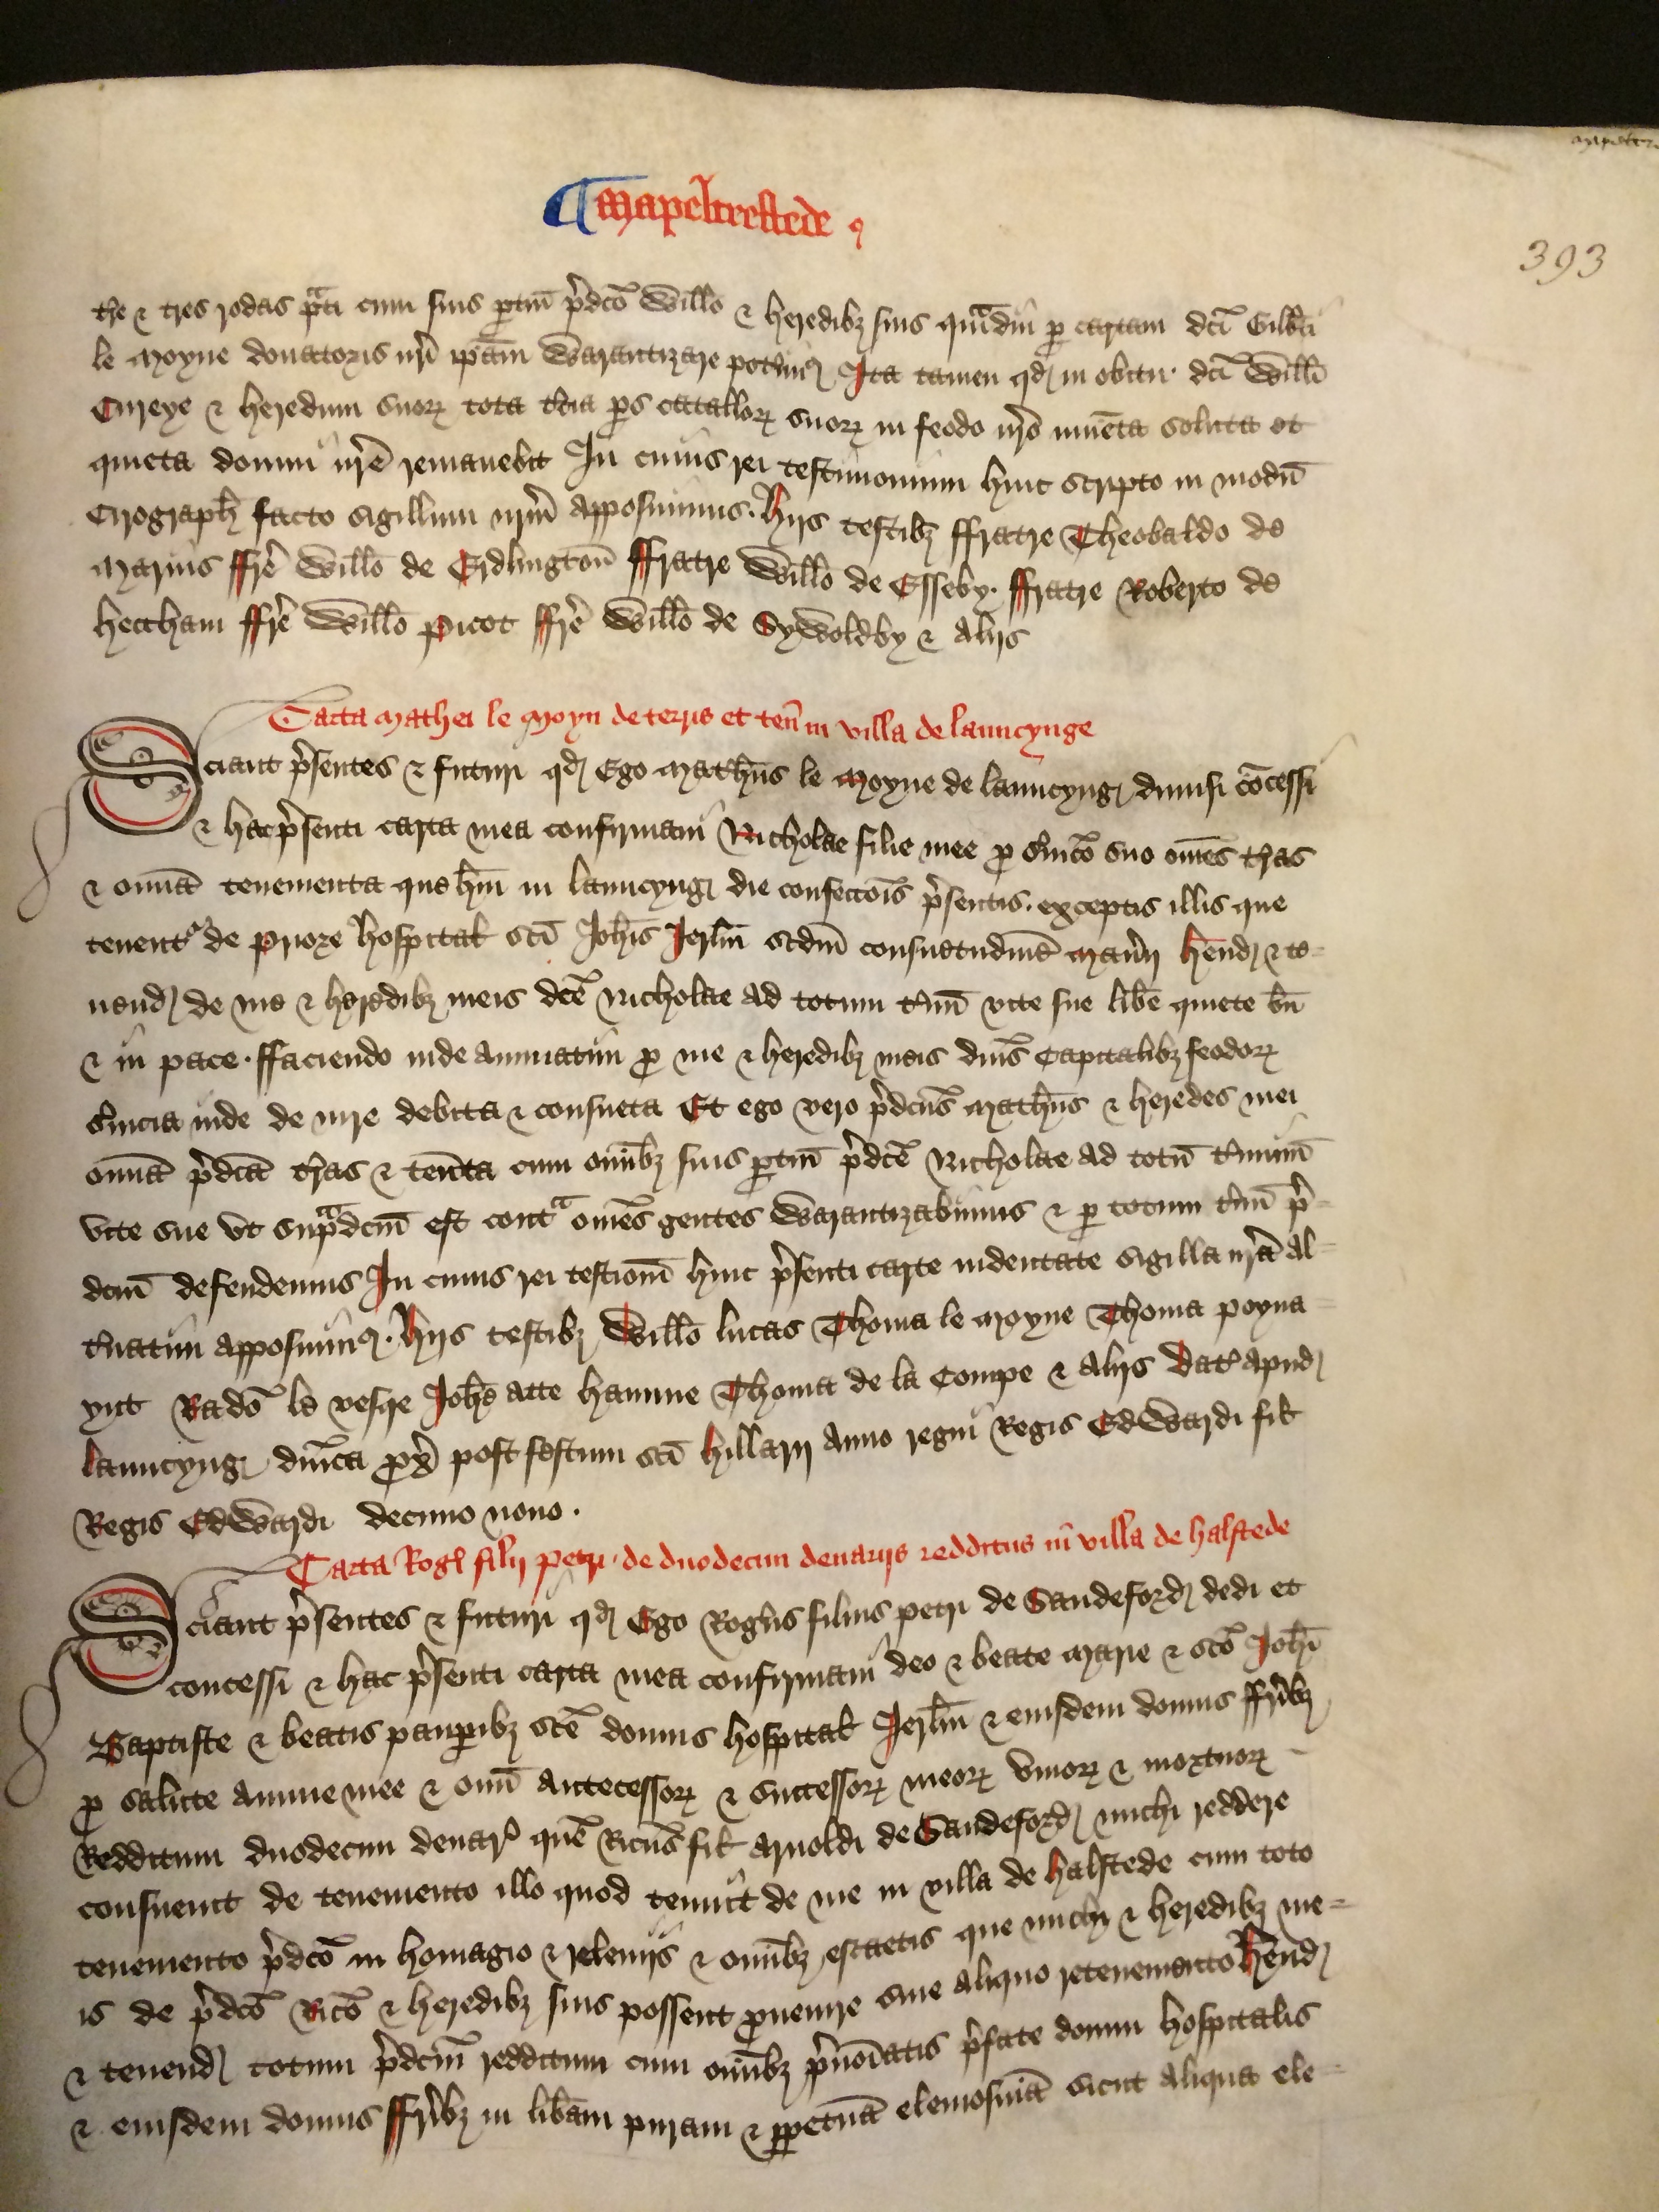 mapelt
¶ Mapeltrestede
393
tre & tres rodas p̃ati cum suis ptiñ p̃dc̃o Willo & heredibȝ suis quãdiu p cartam dc̃i Gilbti
le Moyne donatoris nr̃i ip̃am Warantizare potim9 Ita tamen qd in obitu dc̃i Willi
Cureye & heredum suoꝝ tota t̃cia ps catalloꝝ suoꝝ in feodo nr̃o inuẽta soluta et
quieta domui nr̃e remanebit In cuius rei testimonium huic scripto in modũ
Cirograph facto sigillum nr̃m apposuimus. Hijs testibȝ ffratre Theobaldo de
marius ffr̃e Willo de Erdlingtoñ ffratre Willo de Esseby. ffratre Roberto de
hectham ffr̃e Willo picot ffr̃e Willo de SyWoldby & Alijs
Carta Mathei le Moyn de terris et teñ in villa de launcynge
Sciant p̃sentes & futuri qd Ego Math̃us le Moyne de launcyng dimisi cõcessi
& hac p̃senti carta mea confirmaui Nicholae filie mee p s̃uico suo om̃es t̃ras
& omĩa tenementa que hui in launcyng die confecc̃ois p̃sentis. exceptis illis que
tenentr de priore hospital sc̃i Joh̃is Jerlm̃ scdm̃ consuetudinẽ Mañij hend & te-
nend de me & heredibȝ meis dc̃e Nicholae ad totum t̃mĩ vite sue libe quiete bñ
& in pace. ffaciendo inde annuatim p me & heredibȝ meis dñis Capitalibȝ feodoꝝ
s̃uicia inde de iure debita & consueta Et ego vero p̃dc̃us Math̃us & heredes mei
omĩa p̃dc̃a t̃ras & teñta cum omĩbȝ suis ptiñ p̃dc̃e Nicholae ad totũ t̃minũ
vite sue vt sup̃dcm̃ est cont̃ om̃es gentes Warantizabimus & p totum t̃mĩ p̃-
dcm̃ defendemus In cuius rei testioñi huic p̃senti carte indentate sigilla nr̃a al-
t̃natim apposuim9. Hijs testibȝ Willo lucas Thoma le Moyne Thoma poyna-
unt Rado le veske Joh̃e atte hamme Thoma de la Compe & Alijs Dat Apud
launcyng dñica px̃ post festum sc̃i hillarij Anno regni Regis EdWardi fil
Regis EdWardi decimo nono.
Carta Rogi filij petri. de duodecim denarijs redditus in villa de halstede
Sciant p̃sentes & futuri qd Ego Rog̃us filius petri de Sandeford dedi et
concessi & hac p̃senti carta mea confirmaui deo & beate Marie & sc̃o Joh̃i
Baptiste & beatis paupibȝ sc̃e domus hospital Jerlm̃ & eiusdem domus ffr̃ibȝ
p salute anime mee & omĩ antecessoꝝ & successoꝝ meoꝝ viuoꝝ & mortuoꝝ
Redditum duodecim denar quẽ Ricus fil Arnoldi de Sandeford michi reddere
consueuit de tenemento illo quod tenuit de me in villa de halstede cum toto
tenemento p̃dc̃o in homagio & releuijs & omĩbȝ escaetis que michi & heredibȝ me-
is de p̃dc̃o Rico & heredibȝ suis possent puenire sine aliquo retenemento hend
& tenend totum p̃dcm̃ redditum cum omĩbȝ p̃noĩatis p̃fate domui hospitalis
& eiusdem domus ffr̃ibȝ in libam puram & ppetuã elemosinã sicut aliqua ele-